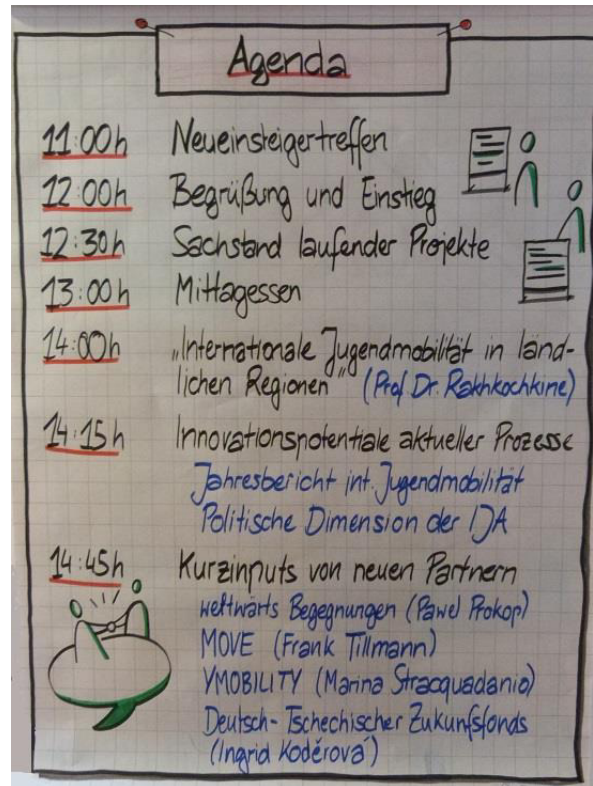 Agenda
11:00h Neueinsteigertreffen
12:00h Begrüßung und Einstieg
12:30h Sachstand laufender Projekte
13:00h Mittagessen
14:00h „Internationale Jugendmobilität in länd-
lichen Regionen" (Prof Dr. Rakhkochkine)
14:15h Innovationspotentiale aktueller Prozesse
Jahresbericht int. Jugendmobilität
Politische Dimension der IJA
14:45h Kurzinputs von neuen Partnern
weltwärts Begegnungen (Pawel Prokop)
MOVE (Frank Tillmann)
YMOBILITY (Marina Stracquadanio)
Deutsch-Tschechischer Zukunfsfonds
(Ingrid Koděrová)